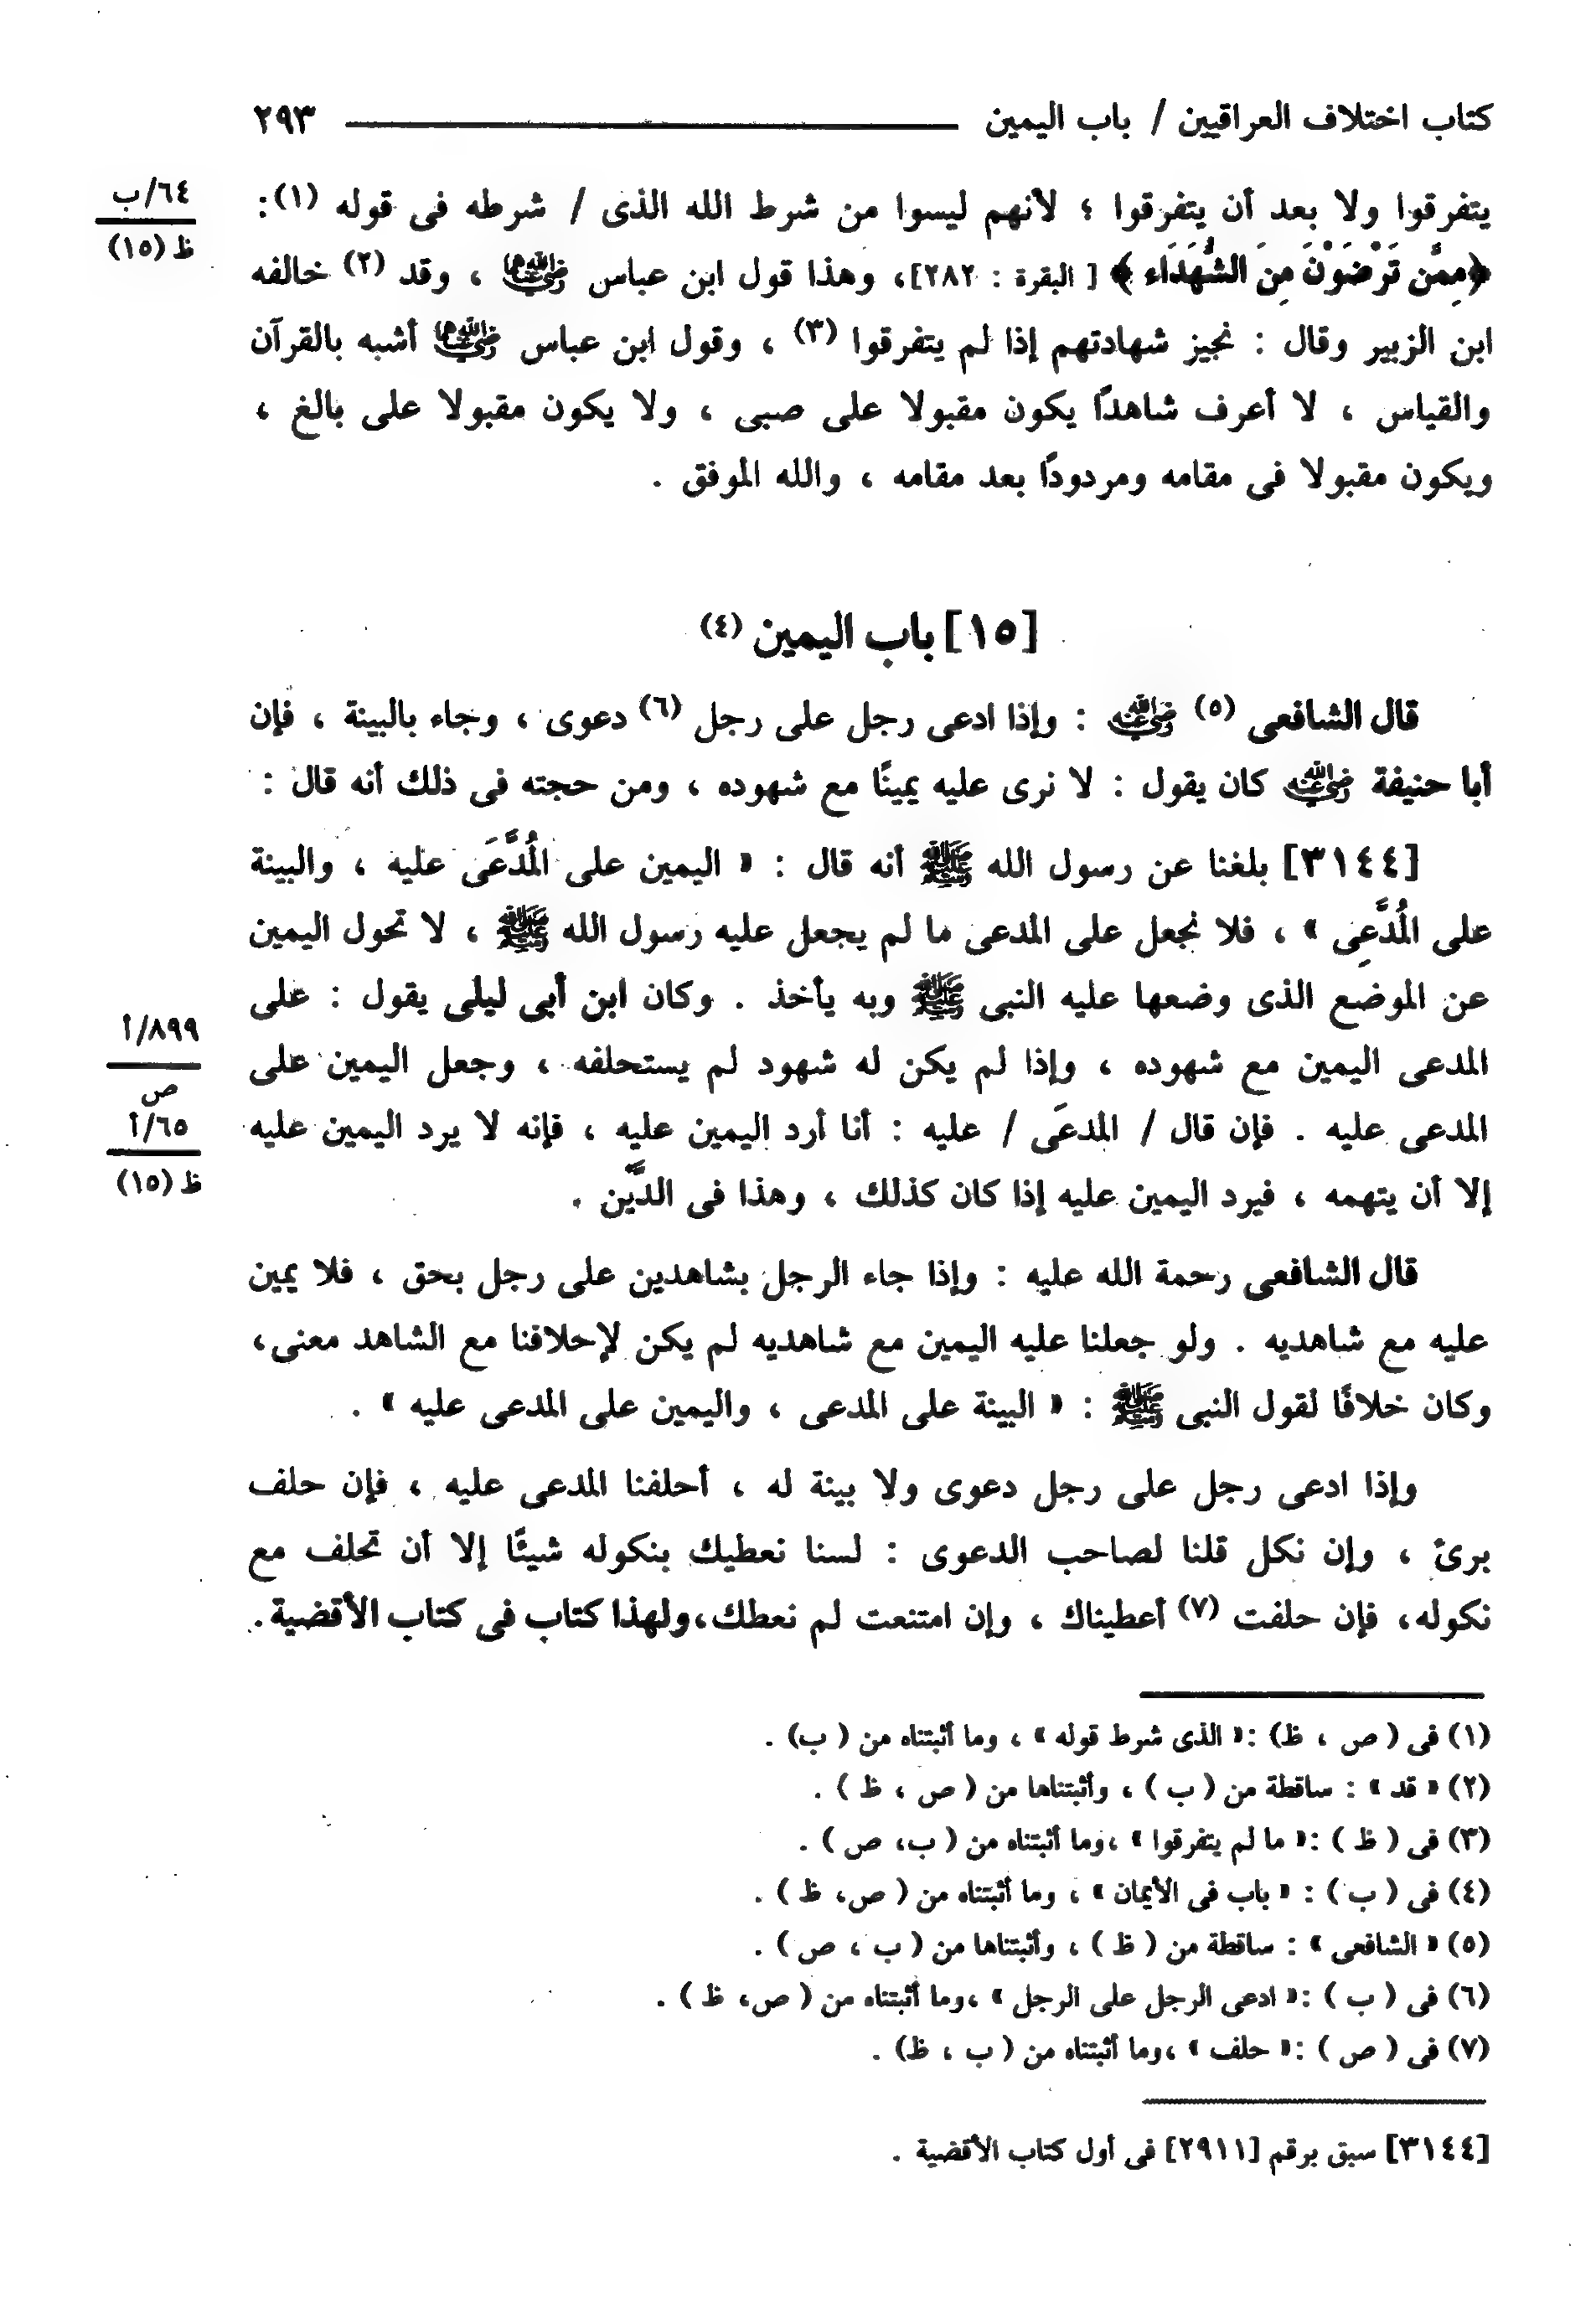 كتاب اختلاف العراقيين / باب اليمين ــــــــــــــــــــ ٢٩٣
يتفرقوا ولا بعد أن يتفرقوا ؛ لأنهم ليسوا من شرط الله الذى / شرطه فى قوله (١):
٦٤/ب
ظ (١٥)
﴿مِمَّن تَرْضَوْنَ مِنَ الشُّهَدَاء ﴾ [ البقرة : ٢٨٢]، وهذا قول ابن عباس رضي الله عنهما ، وقد (٢) خالفه
ابن الزبير وقال : نجيز شهادتهم إذا لم يتفرقوا (٣) ، وقول ابن عباس رضي الله عنهما أشبه بالقرآن
والقياس ، لا أعرف شاهدًا يكون مقبولا على صبى ، ولا يكون مقبولا على بالغ ،
ويكون مقبولا فى مقامه ومردودًا بعد مقامه ، والله الموفق .
[١٥] باب اليمين (٤)
قال الشافعى (٥) رضي الله عنه : وإذا ادعى رجل على رجل (٦) دعوى ، وجاء بالبينة ، فإن
أبا حنيفة رضي الله عنه كان يقول : لا نرى عليه يمينًا مع شهوده ، ومن حجته فى ذلك أنه قال :
[٣١٤٤] بلغنا عن رسول الله ﷺ أنه قال : « اليمين على المُدَّعَى عليه ، والبينة
على المُدَّعِى » ، فلا نجعل على المدعى ما لم يجعل عليه رسول الله ﷺ ، لا تحول اليمين
عن الموضع الذى وضعها عليه النبى ﷺ وبه يأخذ . وكان ابن أبى ليلى يقول : على
المدعى اليمين مع شهوده ، وإذا لم يكن له شهود لم يستحلفه ، وجعل اليمين على
٨٩٩/أ
ص
المدعى عليه . فإن قال / المدعَى / عليه : أنا أرد اليمين عليه ، فإنه لا يرد اليمين عليه
٦٥/أ
ظ (١٥)
إلا أن يتهمه ، فيرد اليمين عليه إذا كان كذلك ، وهذا فى الدَّين .
قال الشافعى رحمة الله عليه : وإذا جاء الرجل بشاهدين على رجل بحق ، فلا يمين
عليه مع شاهديه . ولو جعلنا عليه اليمين مع شاهديه لم يكن لإحلافنا مع الشاهد معنى،
وكان خلافًا لقول النبى ﷺ : « البينة على المدعى ، واليمين على المدعى عليه » .
وإذا ادعى رجل على رجل دعوى ولا بينة له ، أحلفنا المدعى عليه ، فإن حلف
برئ ، وإن نكل قلنا لصاحب الدعوى : لسنا نعطيك بنكوله شيئًا إلا أن تحلف مع
نكوله، فإن حلفت (٧) أعطيناك ، وإن امتنعت لم نعطك،ولهذا كتاب فى كتاب الأقضية.
(١) فى ( ص ، ظ) :« الذى شرط قوله » ، وما أثبتناه من ( ب) .
(٢) « قد » : ساقطة من ( ب ) ، وأثبتناها من ( ص ، ظ ) .
(٣) فى ( ظ ) :« ما لم يتفرقوا » ،وما أثبتناه من ( ب، ص ) .
(٤) فى ( ب ) : « باب فى الأيمان » ، وما أثبتناه من ( ص، ظ ) .
(٥) « الشافعى » : ساقطة من ( ظ ) ، وأثبتناها من ( ب ، ص ) .
(٦) فى ( ب ) :« ادعى الرجل على الرجل » ،وما أثبتناه من ( ص، ظ ) .
(٧) فى ( ص ) :« حلف » ،وما أثبتناه من ( ب ، ظ) .
[٣١٤٤] سبق برقم [٢٩١١] فى أول كتاب الأقضية .